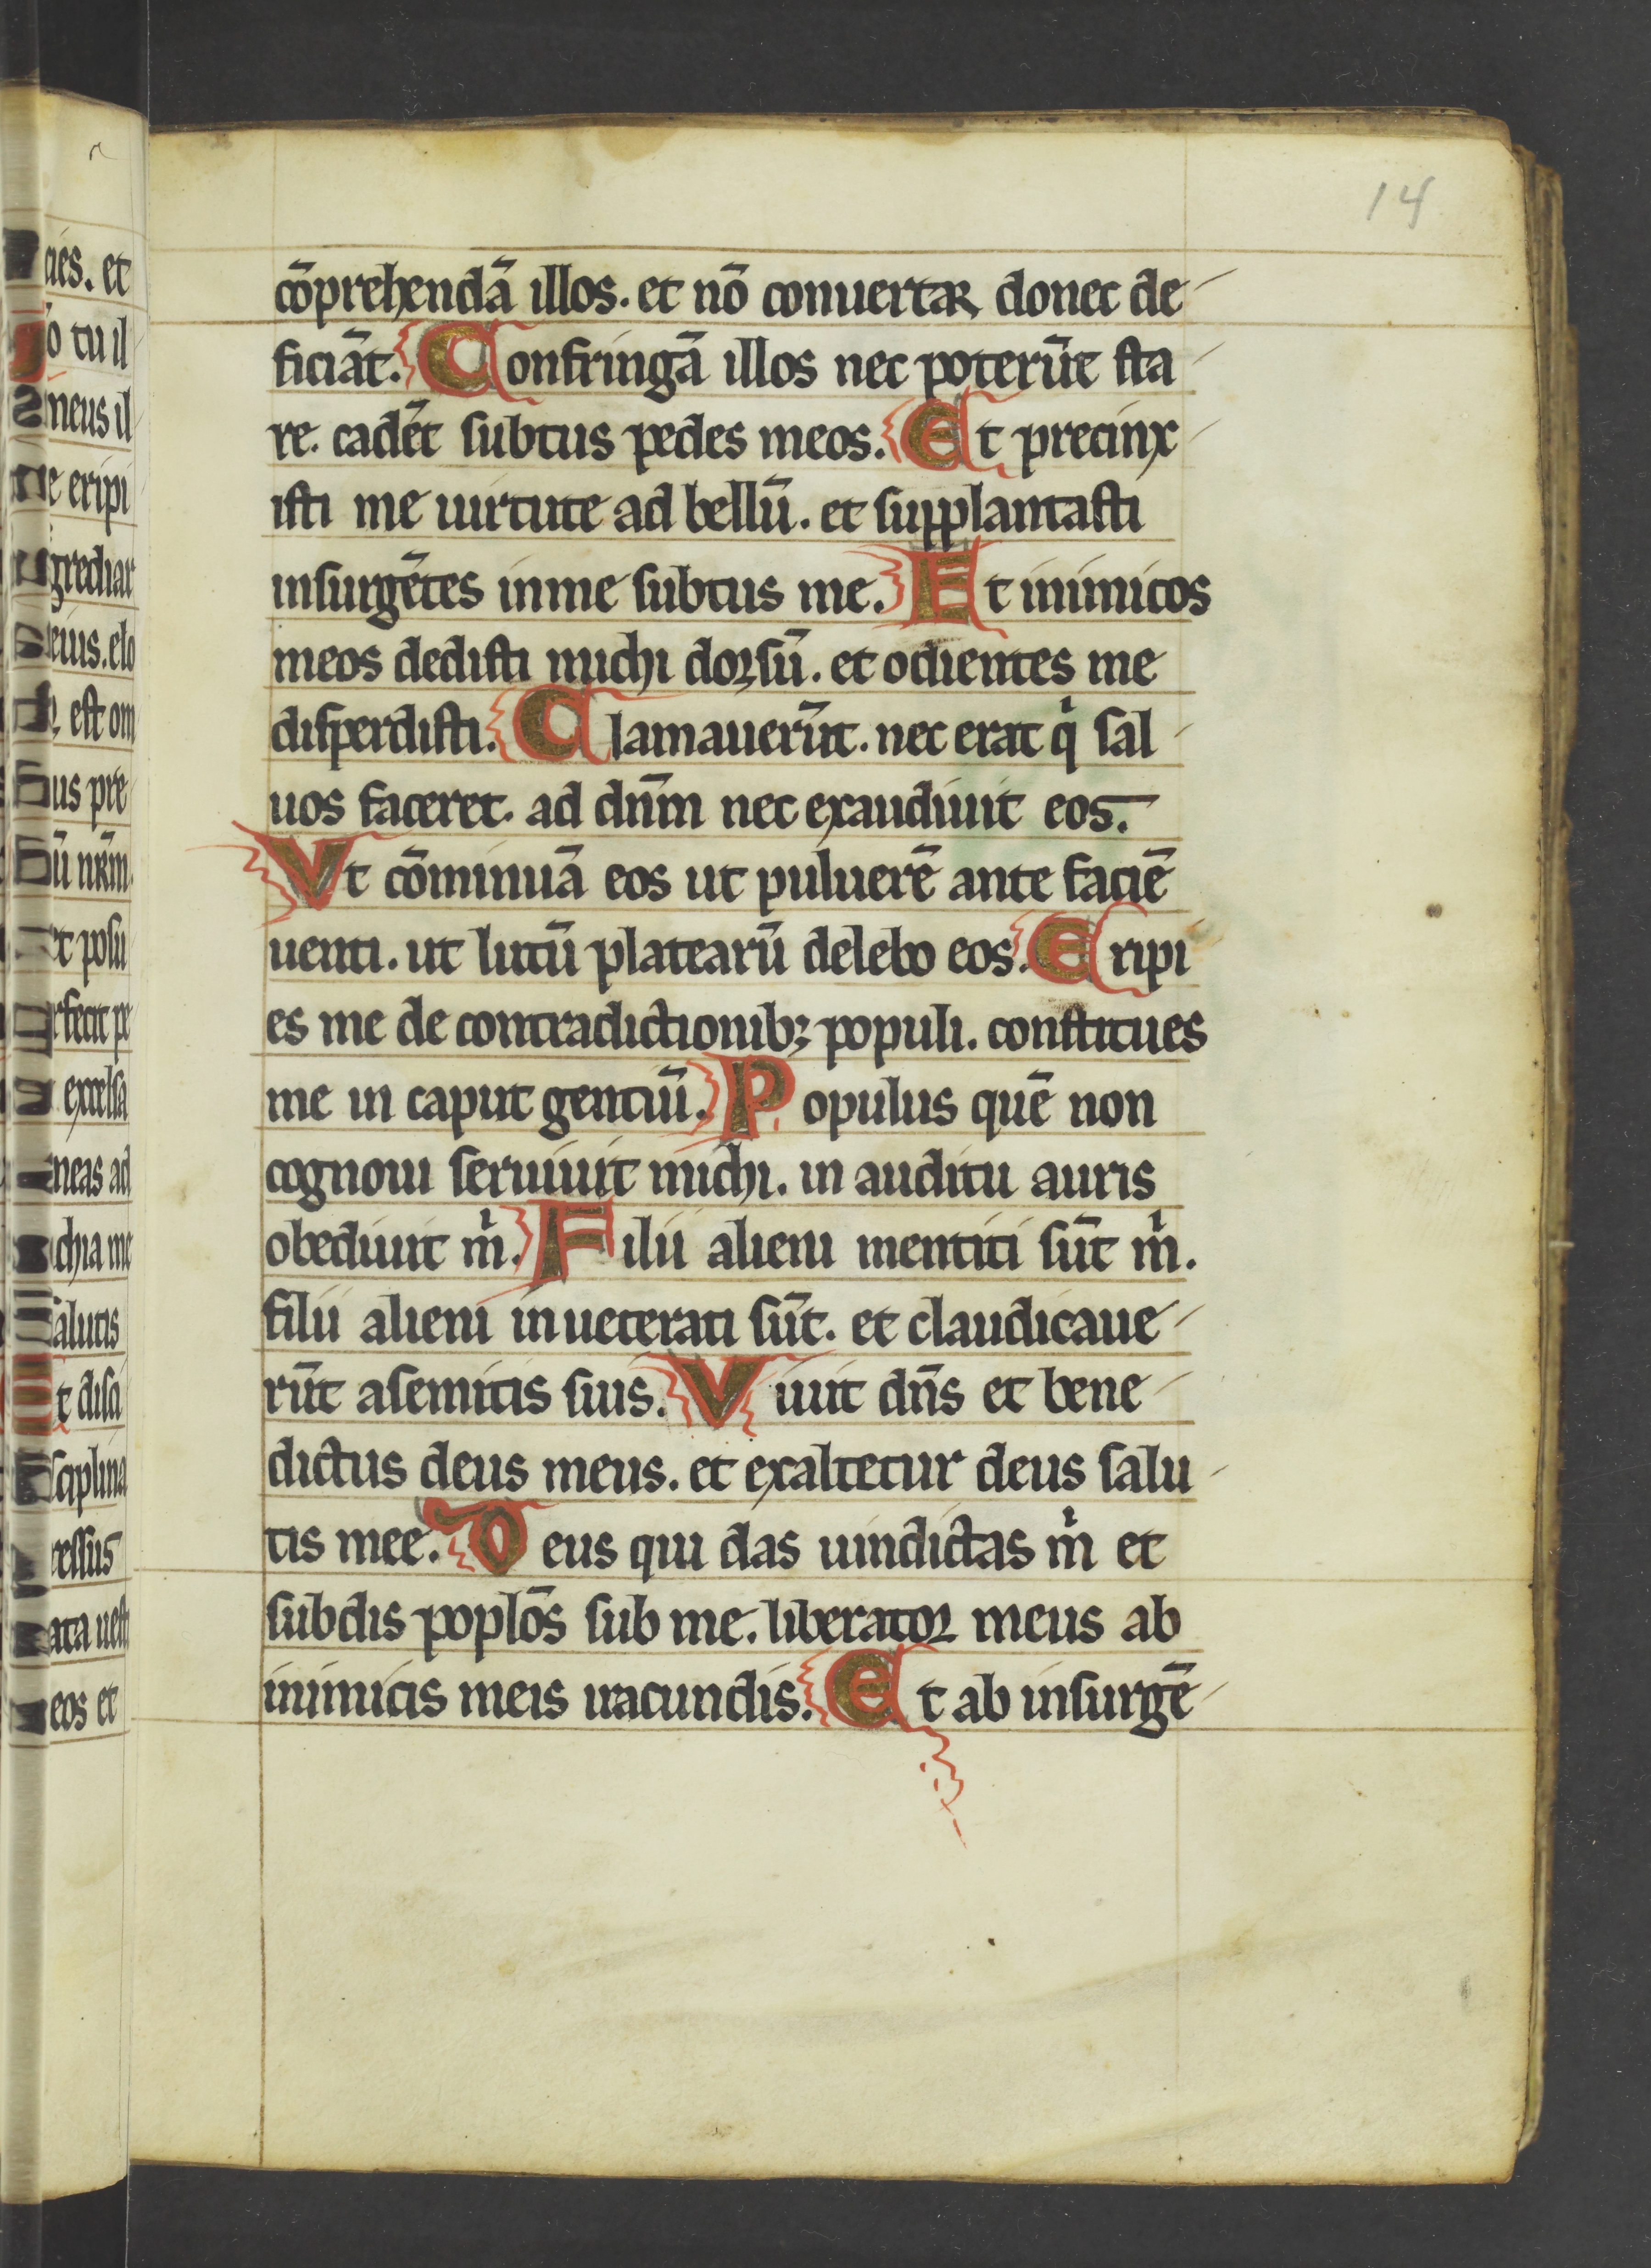 14
cōprehendā illos. et nō conuertar donec de
ficiāt. Confringā illos nec poterūt sta
re. cadēt subtus pedes meos. Et precinx
isti me uirtute ad bellū. et supplantasti
insurgētes in me subtus me. Et inimicos
meos dedisti michi dorsū. et odientes me
disperdisti. Clamauerūt. nec erat q̇ sal
uos faceret. ad dn̄m nec exaudiuit eos.
Vt cōminuā eos ut puluerē ante faciē
uenti. ut lutū platearū delebo eos. Eripi
es me de contradictionibꝫ populi. constitues
me in caput gentiū. Populus quē non
cognoui seruiuit michi. in auditu auris
obediuit mͥ. Filii alieni mentiti sūt mͥ.
filii alieni inueterati sūt. et claudicaue
rūt a semitis suis. Viuit dn̄s et bene
dictus deus meus. et exaltetur deus salu
tis mee. Deus qui das uindictas mͥ et
subdis poplōs sub me. liberator meus ab
inimicis meis iracundis. Et ab insurgē